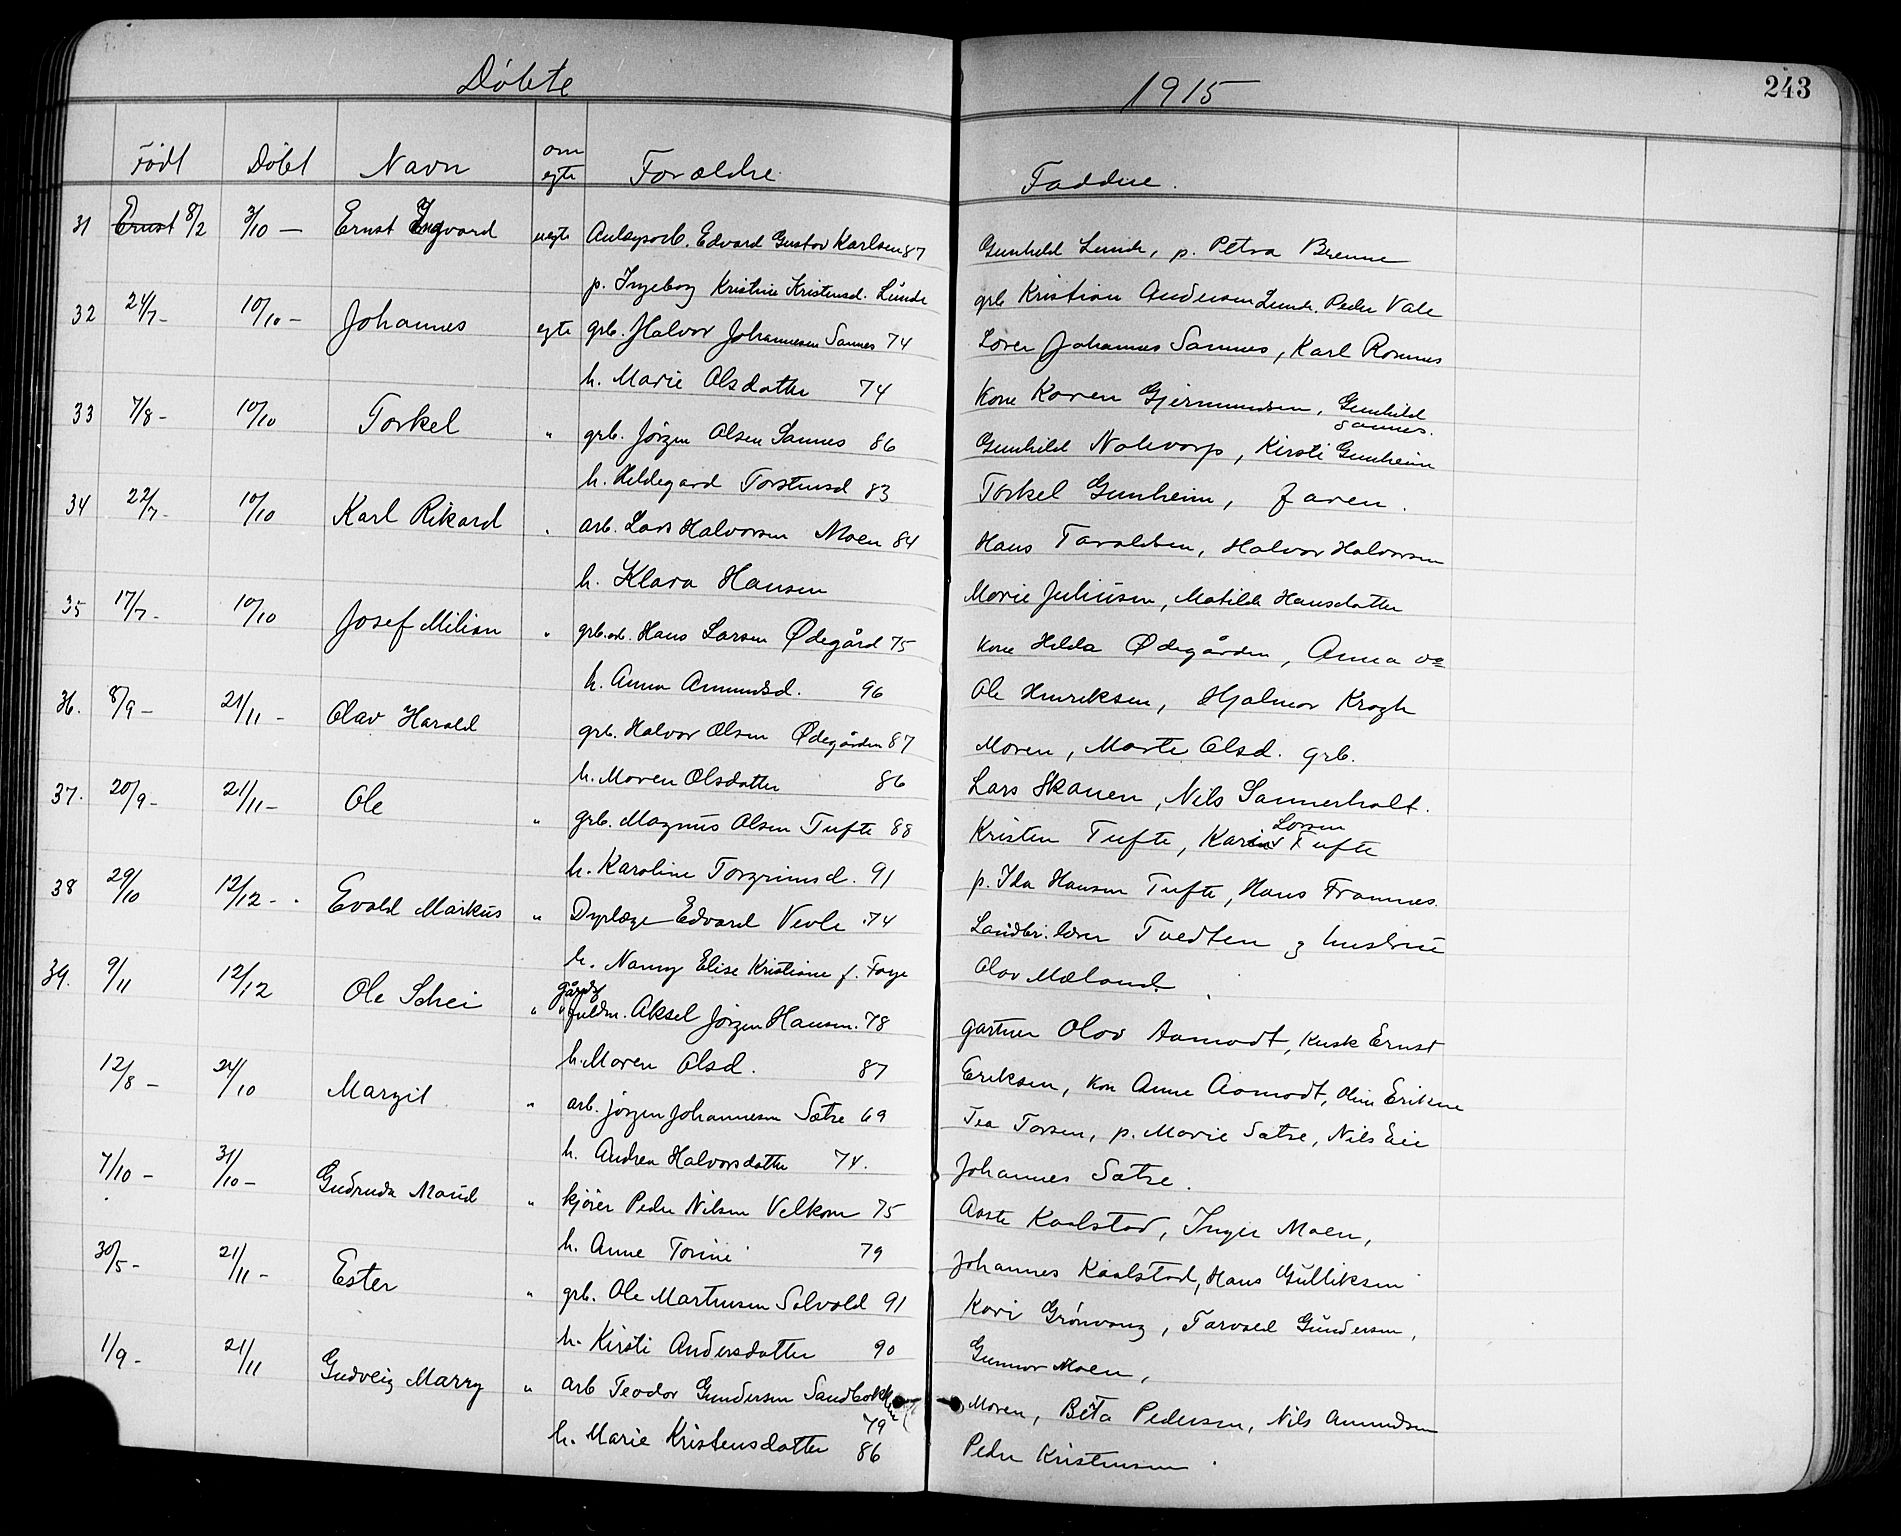 Døbte 1915 243
Født Døbt Navn om egte Forældre Faddere.
31 Ernst 8/2 3/10 — Ernst Yngvard uegte Anlægsarb. Edvard Gustav Karlsen 87 Gunhild Lunde, p. Petra
p. Ingeborg Kristine Kristensd. Lunde grb Kristian Andersen Lunde. Peder Vale
32 24/7 - 10/10 - Johannes egte grb. Halvor Johannesen Sannes 74 Lærer Johannes Sannes, Karl Romnes
h. Marie Olsdatter 74 Kone Karen Gjermundsen, Gunhild Sannes.
33 7/8 - 10/10 Torkel " grb. Jörgen Olsen Sannes 86 Gunhild Nalevarp, Kirsti Gunheim
h. Hildegard Torstensd 83 Torkel Gunheim, faren.
34 22/7 - 10/10 Karl Rikard " arb. Lars Halvorsen Moen 84 Hans Taraldsen, Halvor Halvorsen
h. Klara Hansen Marie Juliusen, Matilde Hansdatter
35 17/7 - 10/10 Josef Milian " grb.arb. Hans Larsen Ødegård 75 Kone Helda Ødegården, Anna do
h. Anna Amundsd. 96 Ole Henriksen, Hjalmar Krogh
36. 8/9 - 21/11 - Olav Harald grb. Halvor Olsen Ødegården 87 Moren, Marte Olsd. grb.
h. Maren Olsdatter 86 Lars Skauen, Nils Sannerholt.
37. 20/9 - 21/11 - Ole " grb. Magnus Olsen Tufte 88 Kristen Tufte, Karin Larsen Tufte
h. Karoline Torgrimsd. 91 p. Ida Hansen Tufte, Hans Framnes.
38 29/10 12/12 - Evald Markus " Dyrlæge Edvard Vevle 74 Landbr. lærer Tvedten og hustru
h. Nanny Elise Kristiane f. Faye Olav Mæland.
39. 9/11 12/12 Ole Schei " gårdsfuldm. Aksel Jörgen Hansen. 78 gartner Olav Aamodt, Kusk Ernst
h. Maren Olsd. 87 Eriksen, Kone Anne Aamodt, Oline Eriksen
12/8 - 24/10 Margit " arb. Jörgen Johannesen Sætre 69 Tea Torsen, p. Marie Sætre, Nils Eie
h. Andrea Halvorsdatter 74. Johannes Sætre.
7/10 - 31/10 - Gudrunda Maud " kjører Peder Nilsen Velkom 75 Aaste Kaalstad, Inger Moen,
h. Anne Torine 79 Johannes Kaalstad, Hans Gulliksen
30/5 - 21/11 - Ester " grb. Ole Martinsen Solvold 91 Kari Grönvang, Tarald Gundersen,
h. Kirsti Andersdatter 90 Gunnar Moen,
1/9 - 21/11 Gudveig Marry " arb Teodor Gundersen 79 Moren, Beta Pedersen, Nils Amundsen
h. Marie Kristensdatter 86 Peder Kristensen